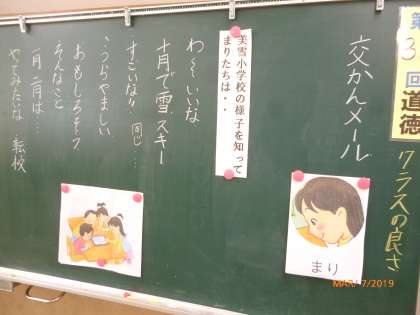 第3回道徳
クラスの良さ
交かんメール
まり
美雪小学校の様子を知って
まりたちは・・
わ〜いいな
十月で雪、スキー
すごいな!! 同じ…
うらやましい
おもしろそう
そんなこと
一月二月は…
やってみたいな 転校
MAR 7/2019